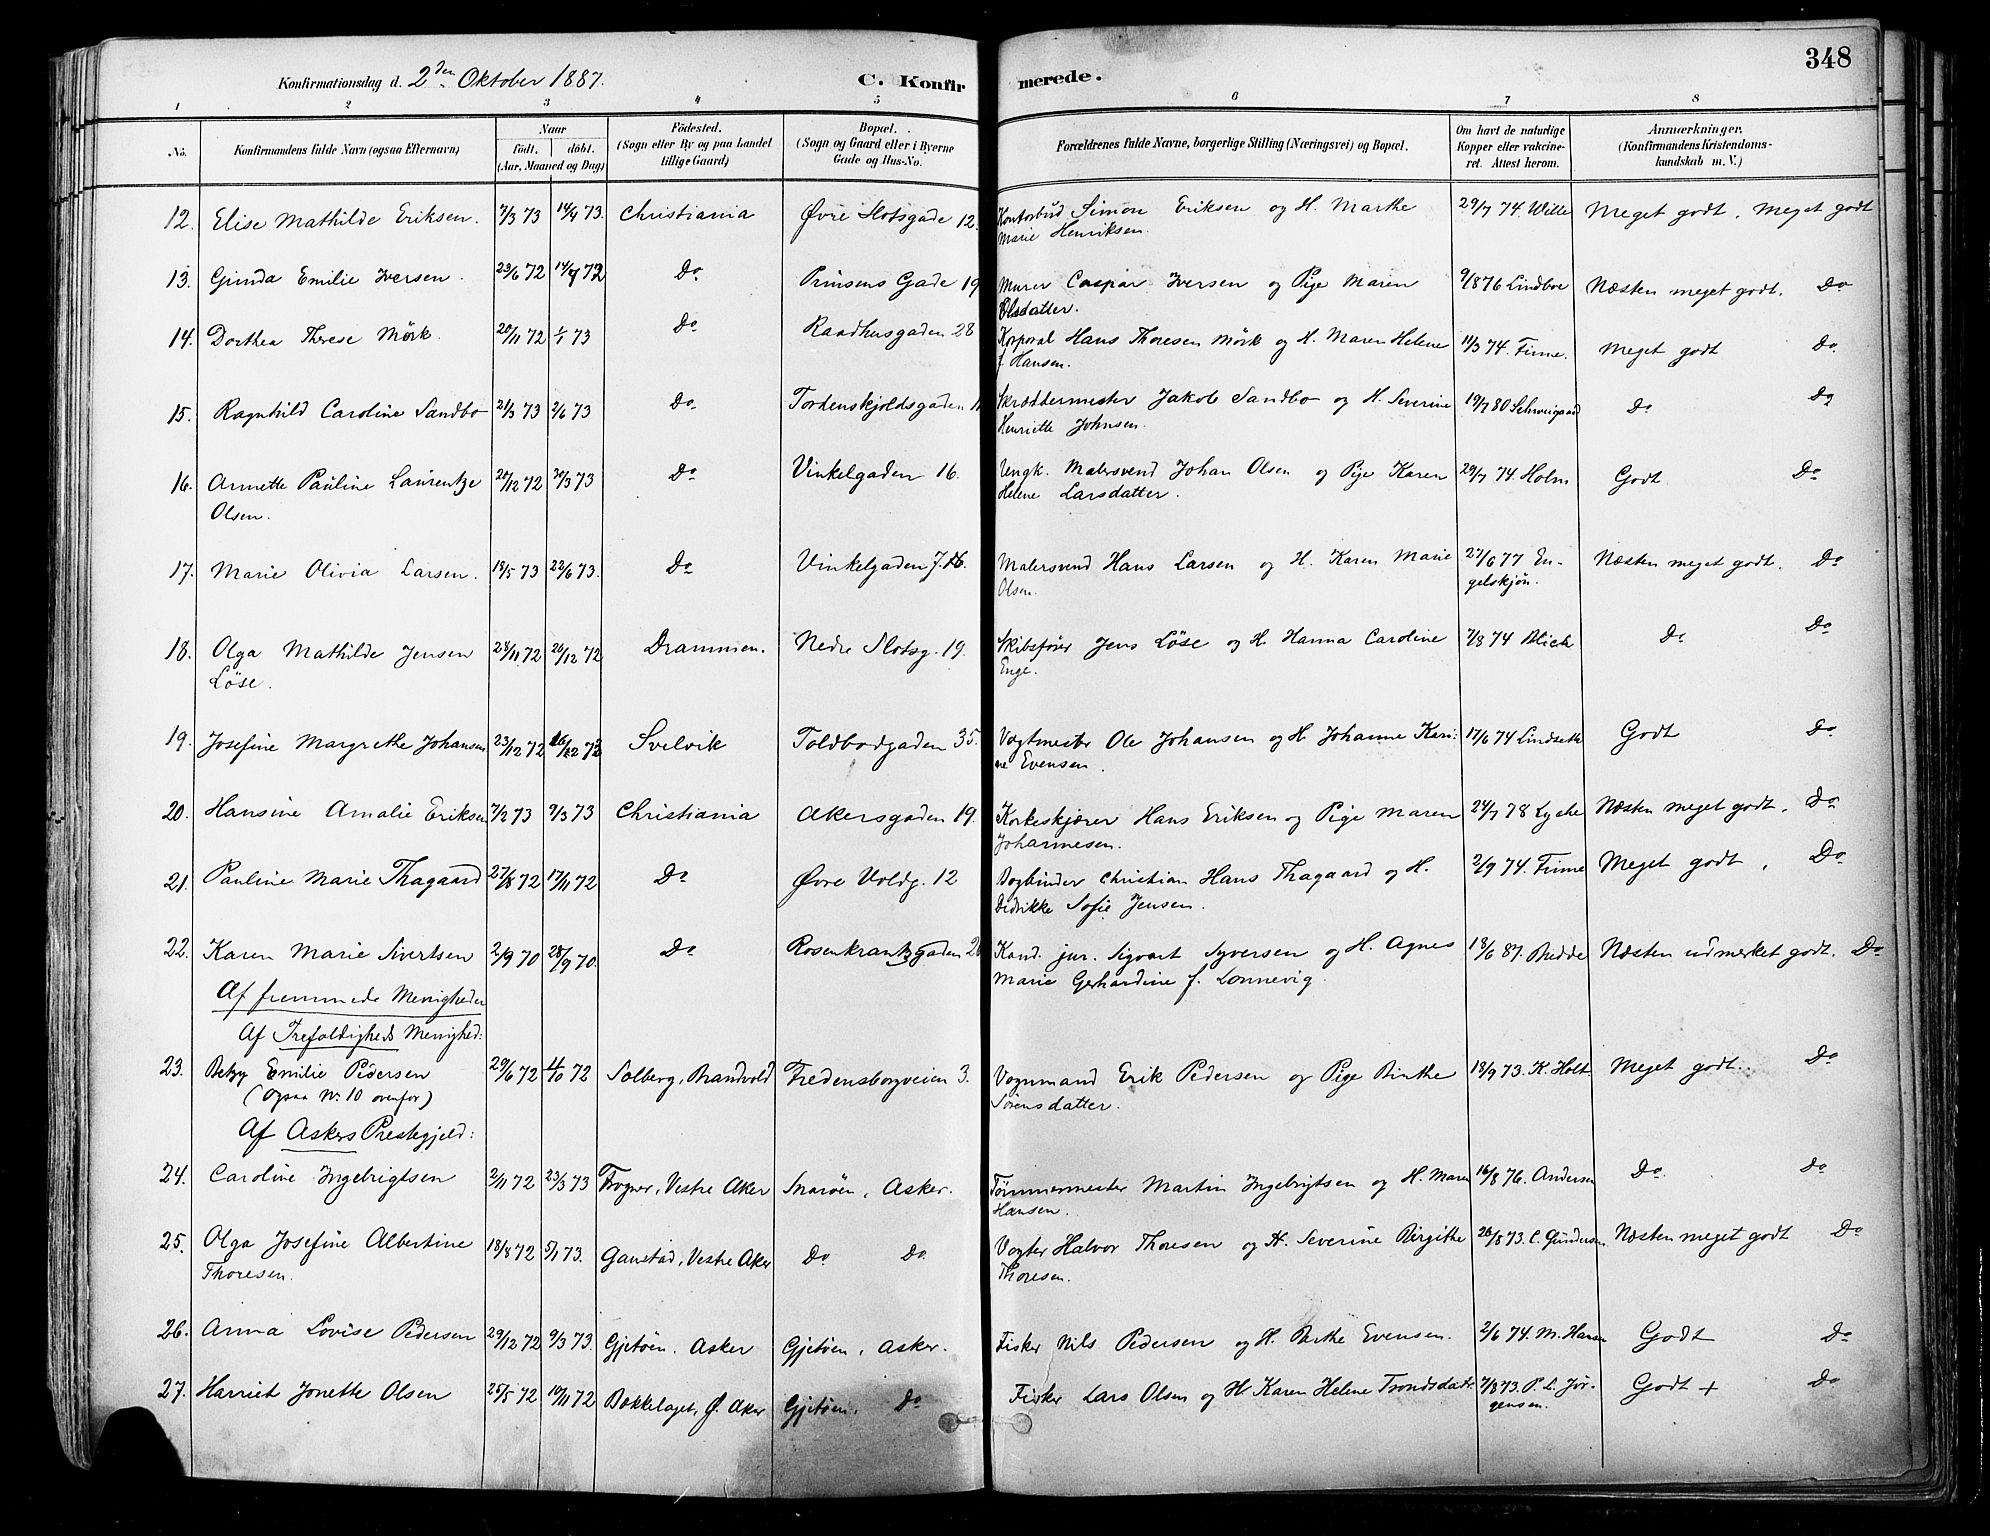 348
Konfirmationsdag d. 2den Oktober 1887.
C. Konfirmerede.
1 2 3 4 5 6 7 8
No. Konfirmandens fulde Navn (ogsaa Efternavn) Naar födt. döbt. (Aar, Maaned og Dag) Födested. (Sogn eller By og paa Landet tillige Gaard) Bopæl. (Sogn og Gaard eller i Byerne Gade og Hus-No. Forældrenes fulde Navne, borgerlige Stilling (Næringsvei) og Bopæl. Om havt de naturlige Kopper eller vakcineret. Attest herom. Anmærkninger. (Konfirmandens Kristendomskundskab m. V.)
12. Elise Mathilde Eriksen. 7/3 73 14/9 73. Christiania Øvre Slotsgade 12. Kontorbud Simon Eriksen og H. Marthe 29/7 74. Wille Meget godt. Meget godt
Marie Henriksen.
13. Gunda Emilie Iversen. 23/6 72 14/9 72 Do Prinsens Gade 19 Murer Caspar Iversen og Pige Maren 9/8 76 Lindboe Næsten meget godt. Do
Olsdatter.
14. Dorthea Therese Mörk. 20/11 72 1/1 73 Do Raadhusgaden 28 Korporal Hans Thoresen Mörk og H. Maren Helene 11/3 74. Finne. Meget godt Do
f. Hansen.
15. Ragnhild Caroline Sandbo 21/3 73 2/6 73 Do Tordenskjoldsgaden Skræddermester Jakob Sandbo og H. Severine 19/7 80 Schweigaard Do Do
Henriette Johnsen.
16. Annette Pauline Laurentze 20/12 72 30/3 73 Do Vinkelgaden 16. Ungk. Malersvend Johan Olsen og Pige Karen 29/7 74 Holm Godt Do
Olsen. Helene Larsdatter.
17. Marie Olivia Larsen. 18/5 73 22/6 73. Do Vinkelgaden 7. Malersvend Hans Larsen og H. Karen Marie 27/6 77 En- Næsten meget godt. Do
Olsen. gelskjön.
18. Olga Mathilde Jensen 28/11 72 26/12 72 Drammen. Nedre Slotsg. 19. Skibsfører Jens Löse og H. Hanna Caroline 7/8 74 Do Do
Löse. Enge.
19. Josefine Margrethe Johansen 23/12 72 26/12 72 Svelvik Toldbodgaden 35. Vagtmester Ole Johansen og H. Johanne Kari- 17/6 74 Lindseth Godt Do
ne Evensen.
20. Hansine Amalie Eriksen 7/2 73 9/3 73 Christiania Akersgaden 19. Korkeskjærer Hans Eriksen og Pige Maren 24/7 78 Lyche Næsten meget godt. Do
Johannesen.
21. Pauline Marie Thagaard 27/8 72 17/11 72 Do Øvre Voldg. 12 Bogbinder Christian Hans Thagaard og H. 2/9 74. Finne Meget godt. Do
Didrikke Sofie Jensen.
22. Karen Marie Sivertsen 2/9 70 28/9 70. Do Rosenkrantzgaden 20 Kand. jur. Sigvart Syversen og H. Agnes 18/6 87. Bredde Næsten udmerket godt. Do
Marie Gerhardine f. Lonnevig.
Af fremmede Menigheder
Af Trefoldigheds Menighed:
23. Betzy Emilie Pedersen 29/6 72 4/10 72 Solberg, Brandvold Fredensborgveien 3. Vognmand Erik Pedersen og Pige Birthe 18/9 73. K. Holt. Meget godt. Do
(ogsaa No 10 ovenfor) Sörensdatter.
Af Askers Prestegjeld:
24. Caroline Ingebrigtsen 2/11 72 23/3 73 Frogner, Vestre Aker Snaröen, Asker. Tömmermester Martin Ingebrigtsen og H. Maren 16/8 76. Andersen Do Do
Hansen.
25. Olga Josefine Albertine 18/8 72 5/1 73. Gaustad, Vestre Aker Do Do Vogter Halvor Thoresen og H. Severine Birgithe 26/8 73. C. Gundersen Næsten meget godt Do
Thoresen. Thoresen.
26. Anna Lovise Pedersen 29/12 72 9/3 73. Gjetöen. Asker Gjetöen, Asker. Fisker Nils Pedersen og H. Birthe Evensen. 2/6 74. M. Hansen Godt Do
27. Harriet Jonette Olsen 25/5 72 10/11 72 Bækkelaget, Ø. Aker Gjetöen, Do Fisker Lars Olsen og H. Karen Helene Trondsdatt. 7/8 73. P. L. Jör- Godt + Do
gensen.